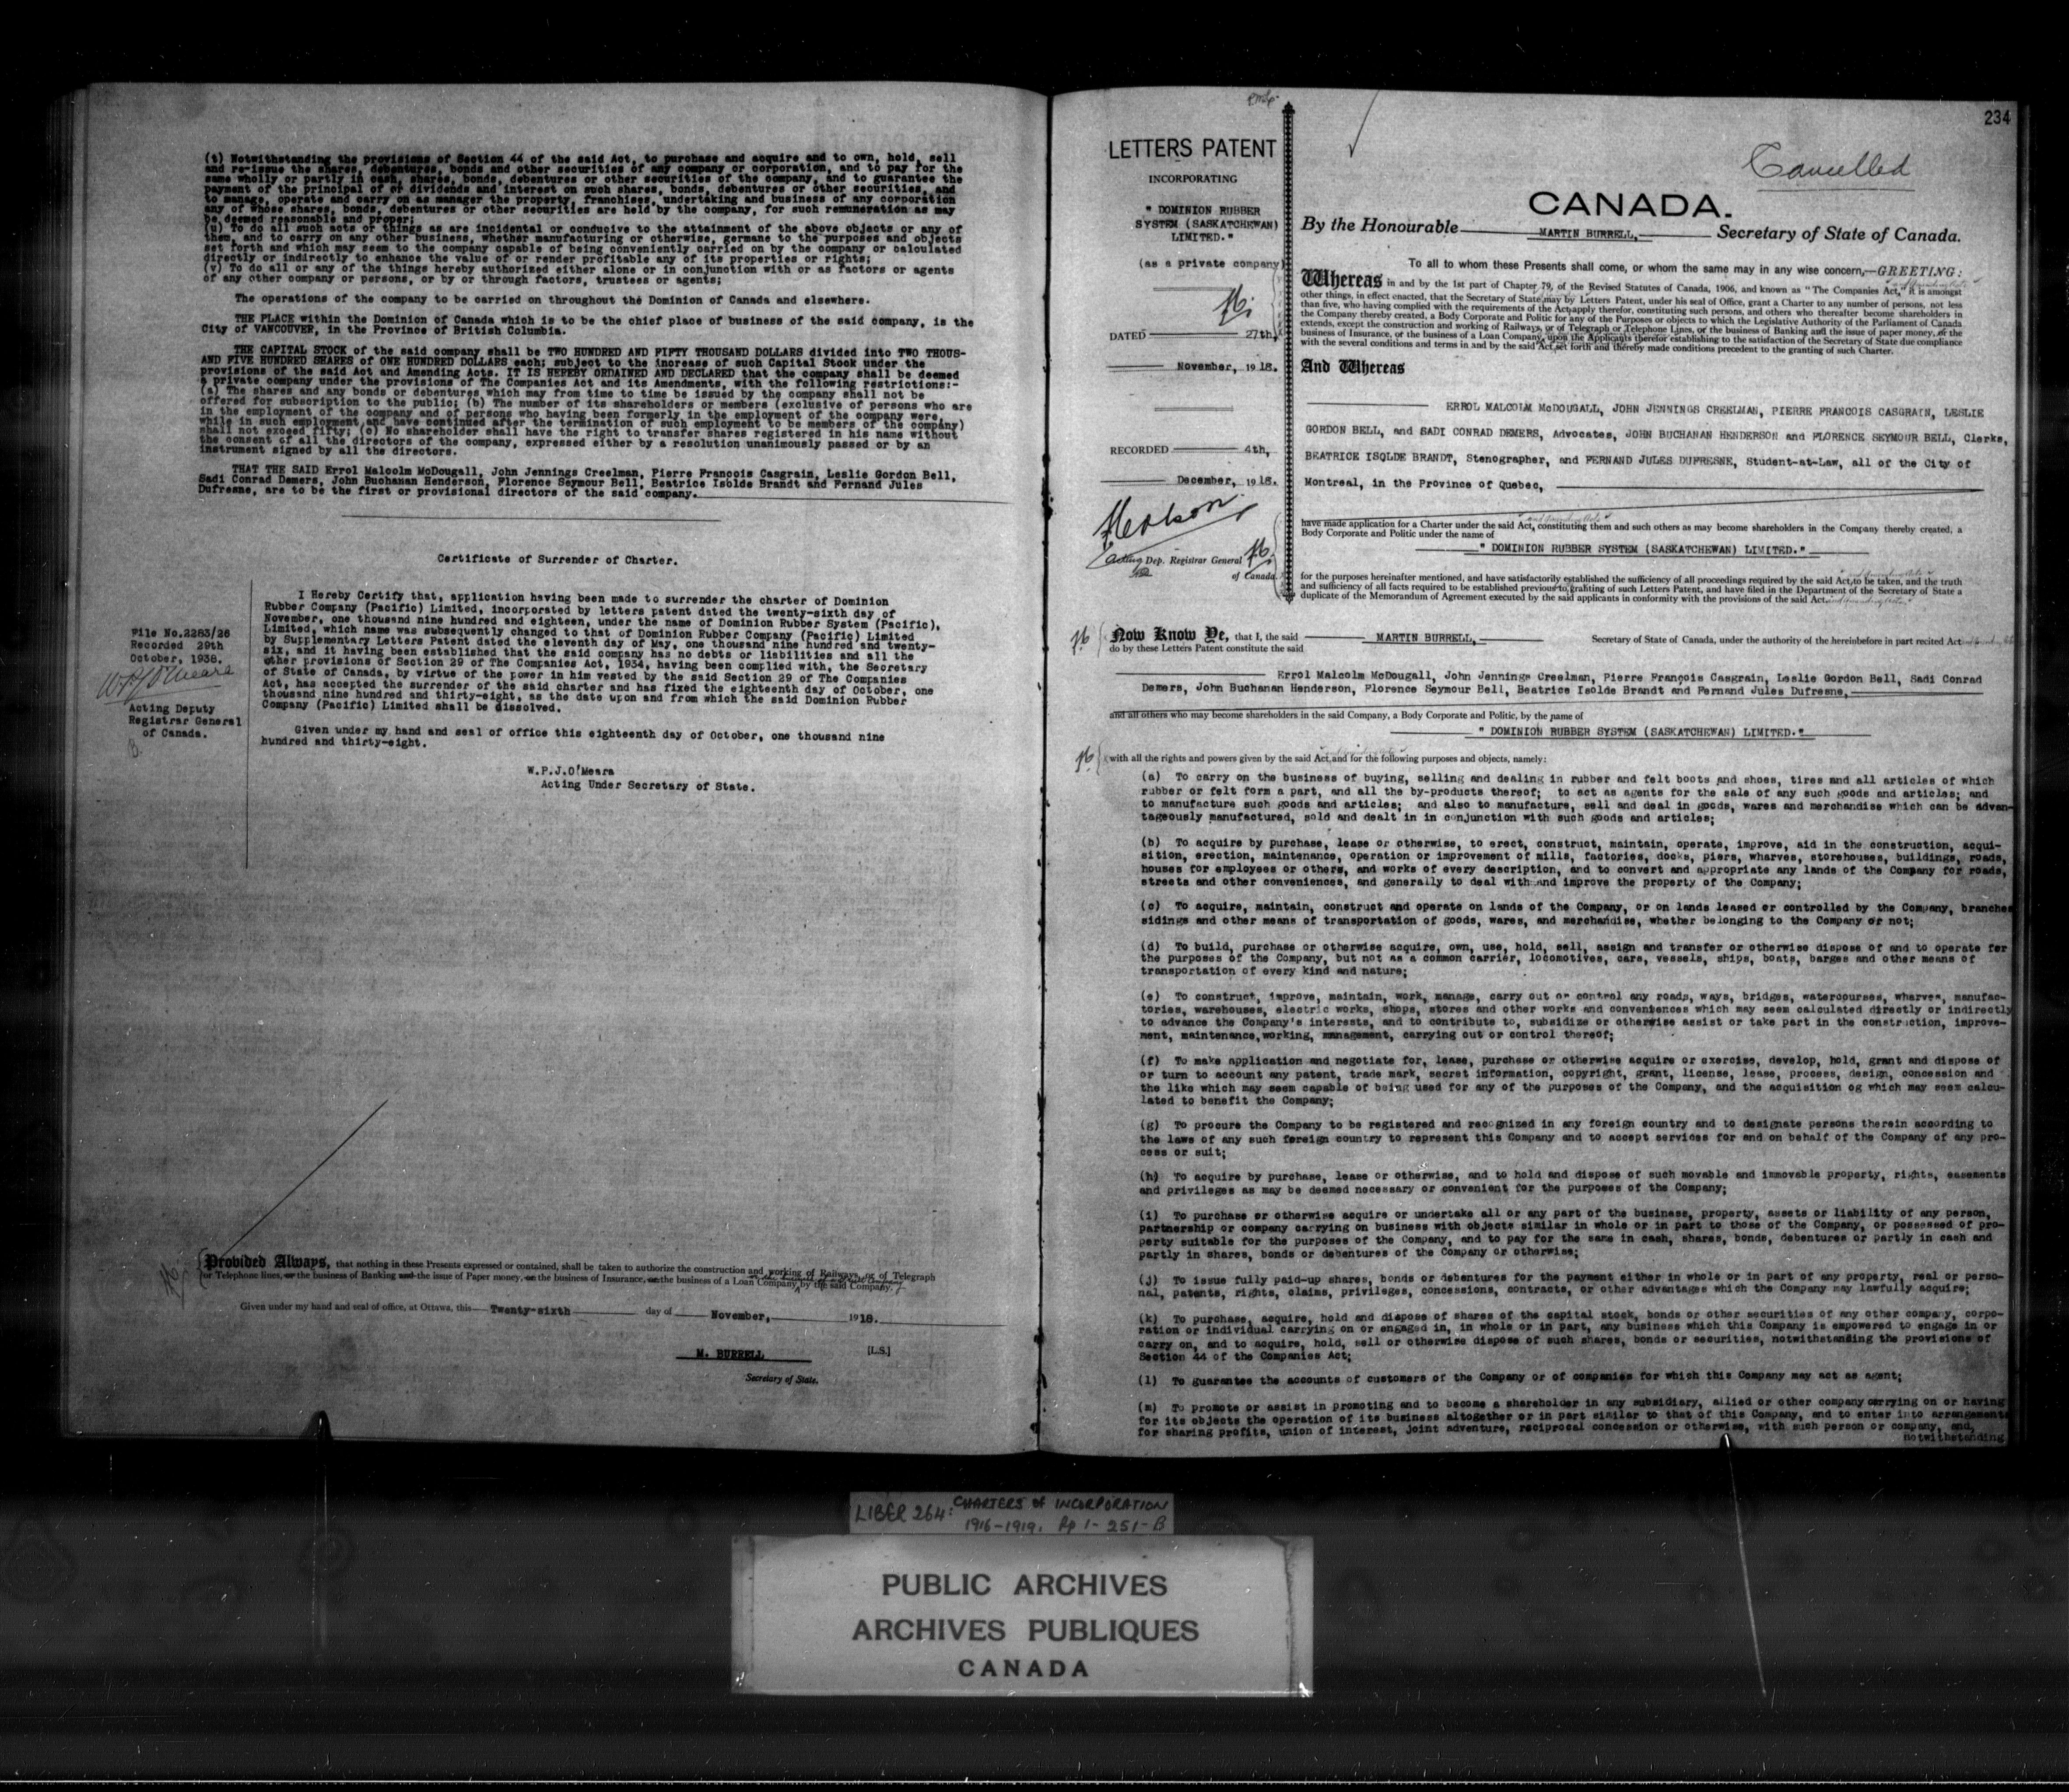 (t) Notwithstanding the provisions of Section 44 of the said Act, to purchase and acquire and to own, hold, sell
and re-issue the shares, debentures, bonds and other securities of any company or corporation, and to pay for the
same wholly or partly in cash, shares, bonds, debentures or other securities of the company, and to guarantee the
payment of the principal of or dividends and interest on such shares, bonds, debentures or other securities, and
to manage, operate and carry on as manager the property, franchises, undertaking and business of any corporation
any of whose shares, bonds, debentures or other securities are held by the company, for such remuneration as may
be deemed reasonable and proper;
(u) To do all such acts or things as are incidental or conducive to the attainment of the above objects or any of
them, and to carry on any other business, whether manufacturing or otherwise, germane to the purposes and objects
set forth and which may seem to the company capable of being conveniently carried on by the company or calculated
directly or indirectly to enhance the value of or render profitable any of its properties or rights;
(v) To do all or any of the things hereby authorized either alone or in conjunction with or as factors or agents
of any other company or persons, or by or through factors, trustees or agents;
The operations of the company to be carried on throughout the Dominion of Canada and elsewhere.
THE PLACE within the Dominion of Canada which is to be the chief place of business of the said company, is the
City of VANCOUVER, in the Province of British Columbia.
THE CAPITAL STOCK of the said company shall be TWO HUNDRED AND FIFTY THOUSAND DOLLARS divided into TWO THOUS-
AND FIVE HUNDRED SHARES of ONE HUNDRED DOLLARS each; subject to the increase of such Capital Stock under the
provisions of the said Act and Amending Acts. IT IS HEREBY ORDAINED AND DECLARED that the company shall be deemed
a private company under the provisions of The Companies Act and its Amendments, with the following restrictions:-
(a) The shares and any bonds or debentures which may from time to time be issued by the company shall not be
offered for subscription to the public; (b) The number of its shareholders or members (exclusive of persons who are
in the employment of the company and of persons who having been formerly in the employment of the company were,
while in such employment and have continued after the termination of such employment to be members of the company)
shall not exceed fifty; (c) No shareholder shall have the right to transfer shares registered in his name without
the consent of all the directors of the company, expressed either by a resolution unanimously passed or by an
instrument signed by all the directors.
THAT THE SAID Errol Malcolm McDougall, John Jennings Creelman, Pierre Francois Casgrain, Leslie Gordon Bell,
Sadi Conrad Demers, John Buchanan Henderson, Florence Seymour Bell, Beatrice Isolde Brandt and Fernand Jules
Dufresne, are to be the first or provisional directors of the said company.
Certificate of Surrender of Charter.
File No.2283/26
Recorded 29th
October, 1938.
W.P.J. O'Meara
Acting Deputy
Registrar General
of Canada.
I Hereby Certify that, application having been made to surrender the charter of Dominion
Rubber Company (Pacific) Limited, incorporated by letters patent dated the twenty-sixth day of
November, one thousand nine hundred and eighteen, under the name of Dominion Rubber System (Pacific),
Limited, which name was subsequently changed to that of Dominion Rubber Company (Pacific) Limited
by Supplementary Letters Patent dated the eleventh day of May, one thousand nine hundred and twenty-
six, and it having been established that the said company has no debts or liabilities and all the
other provisions of Section 29 of The Companies Act, 1934, having been complied with, the Secretary
of State of Canada, by virtue of the power in him vested by the said Section 29 of The Companies
Act, has accepted the surrender of the said charter and has fixed the eighteenth day of October, one
thousand nine hundred and thirty-eight, as the date upon and from which the said Dominion Rubber
Company (Pacific) Limited shall be dissolved.
Given under my hand and seal of office this eighteenth day of October, one thousand nine
hundred and thirty-eight.
W.P.J.O'Meara
Acting Under Secretary of State.
Provided Always, that nothing in these Presents expressed or contained, shall be taken to authorize the construction and working of Railways, or of Telegraph
or Telephone lines, or the business of Banking and the issue of Paper money, or the business of Insurance, or the business of a Loan Company by the said Company.
Given under my hand and seal of office, at Ottawa, this Twenty-sixth day of November, 1918.
M. BURRELL [L.S.]
Secretary of State.
234
Cancelled
LETTERS PATENT
INCORPORATING
" DOMINION RUBBER
SYSTEM (SASKATCHEWAN)
LIMITED."
(as a private company)
DATED 27th,
November, 1918.
RECORDED 4th,
December, 1918.
Acting Dep. Registrar General
of Canada.
CANADA.
By the Honourable MARTIN BURRELL, Secretary of State of Canada.
To all to whom these Presents shall come, or whom the same may in any wise concern,—GREETING:
Whereas in and by the 1st part of Chapter 79, of the Revised Statutes of Canada, 1906, and known as "The Companies Act," it is amongst
other things, in effect enacted, that the Secretary of State may by Letters Patent, under his seal of Office, grant a Charter to any number of persons, not less
than five, who having complied with the requirements of the Act apply therefor, constituting such persons, and others who thereafter become shareholders in
the Company thereby created, a Body Corporate and Politic for any of the Purposes or objects to which the Legislative Authority of the Parliament of Canada
extends, except the construction and working of Railways, or of Telegraph or Telephone Lines, or the business of Banking and the issue of paper money, or the
business of Insurance, or the business of a Loan Company, upon the Applicants therefor establishing to the satisfaction of the Secretary of State due compliance
with the several conditions and terms in and by the said Act, set forth and thereby made conditions precedent to the granting of such Charter.
And Whereas
ERROL MALCOLM McDOUGALL, JOHN JENNINGS CREELMAN, PIERRE FRANCOIS CASGRAIN, LESLIE
GORDON BELL, and SADI CONRAD DEMERS, Advocates, JOHN BUCHANAN HENDERSON and FLORENCE SEYMOUR BELL, Clerks,
BEATRICE ISOLDE BRANDT, Stenographer, and FERNAND JULES DUFRESNE, Student-at-Law, all of the City of
Montreal, in the Province of Quebec,
have made application for a Charter under the said Act, constituting them and such others as may become shareholders in the Company thereby created, a
Body Corporate and Politic under the name of
" DOMINION RUBBER SYSTEM (SASKATCHEWAN) LIMITED."
for the purposes hereinafter mentioned, and have satisfactorily established the sufficiency of all proceedings required by the said Act, to be taken, and the truth
and sufficiency of all facts required to be established previous to granting of such Letters Patent, and have filed in the Department of the Secretary of State a
duplicate of the Memorandum of Agreement executed by the said applicants in conformity with the provisions of the said Act.
Now Know Ye, that I, the said MARTIN BURRELL, Secretary of State of Canada, under the authority of the hereinbefore in part recited Act
do by these Letters Patent constitute the said
Errol Malcolm McDougall, John Jennings Creelman, Pierre François Casgrain, Leslie Gordon Bell, Sadi Conrad
Demers, John Buchanan Henderson, Florence Seymour Bell, Beatrice Isolde Brandt and Fernand Jules Dufresne,
and all others who may become shareholders in the said Company, a Body Corporate and Politic, by the name of
" DOMINION RUBBER SYSTEM (SASKATCHEWAN) LIMITED."
with all the rights and powers given by the said Act, and for the following purposes and objects, namely:
(a) To carry on the business of buying, selling and dealing in rubber and felt boots and shoes, tires and all articles of which
rubber or felt form a part, and all the by-products thereof; to act as agents for the sale of any such goods and articles; and
to manufacture such goods and articles; and also to manufacture, sell and deal in goods, wares and merchandise which can be advan-
tageously manufactured, sold and dealt in in conjunction with such goods and articles;
(b) To acquire by purchase, lease or otherwise, to erect, construct, maintain, operate, improve, aid in the construction, acqui-
sition, erection, maintenance, operation or improvement of mills, factories, docks, piers, wharves, storehouses, buildings, roads,
houses for employees or others, and works of every description, and to convert and appropriate any lands of the Company for roads,
streets and other conveniences, and generally to deal with and improve the property of the Company;
(c) To acquire, maintain, construct and operate on lands of the Company, or on lands leased or controlled by the Company, branches
sidings and other means of transportation of goods, wares, and merchandise, whether belonging to the Company or not;
(d) To build, purchase or otherwise acquire, own, use, hold, sell, assign and transfer or otherwise dispose of and to operate for
the purposes of the Company, but not as a common carrier, locomotives, cars, vessels, ships, boats, barges and other means of
transportation of every kind and nature;
(e) To construct, improve, maintain, work, manage, carry out or control any roads, ways, bridges, watercourses, wharves, manufac-
tories, warehouses, electric works, shops, stores and other works and conveniences which may seem calculated directly or indirectly
to advance the Company's interests, and to contribute to, subsidize or otherwise assist or take part in the construction, improve-
ment, maintenance,working, management, carrying out or control thereof;
(f) To make application and negotiate for, lease, purchase or otherwise acquire or exercise, develop, hold, grant and dispose of
or turn to account any patent, trade mark, secret information, copyright, grant, license, lease, process, design, concession and
the like which may seem capable of being used for any of the purposes of the Company, and the acquisition og which may seem calcu-
lated to benefit the Company;
(g) To procure the Company to be registered and recognized in any foreign country and to designate persons therein according to
the laws of any such foreign country to represent this Company and to accept services for and on behalf of the Company of any pro-
cess or suit;
(h) To acquire by purchase, lease or otherwise, and to hold and dispose of such movable and immovable property, rights, easements
and privileges as may be deemed necessary or convenient for the purposes of the Company;
(i) To purchase or otherwise acquire or undertake all or any part of the business, property, assets or liability of any person,
partnership or company carrying on business with objects similar in whole or in part to those of the Company, or possessed of pro-
perty suitable for the purposes of the Company, and to pay for the same in cash, shares, bonds, debentures or partly in cash and
partly in shares, bonds or debentures of the Company or otherwise;
(j) To issue fully paid-up shares, bonds or debentures for the payment either in whole or in part of any property, real or perso-
nal, patents, rights, claims, privileges, concessions, contracts, or other advantages which the Company may lawfully acquire;
(k) To purchase, acquire, hold and dispose of shares of the capital stock, bonds or other securities of any other company, corpo-
ration or individual carrying on or engaged in, in whole or in part, any business which this Company is empowered to engage in or
carry on, and to acquire, hold, sell or otherwise dispose of such shares, bonds or securities, notwithstanding the provisions of
Section 44 of the Companies Act;
(l) To guarantee the accounts of customers of the Company or of companies for which this Company may act as agent;
(m) To promote or assist in promoting and to become a shareholder in any subsidiary, allied or other company carrying on or having
for its objects the operation of its business altogether or in part similar to that of this Company, and to enter into arrangements
for sharing profits, union of interest, joint adventure, reciprocal concession or otherwise, with such person or company, and,
notwithstanding
LIBER 264: CHARTERS of INCORPORATION
1916-1919. Pp 1-251-B
PUBLIC ARCHIVES
ARCHIVES PUBLIQUES
CANADA